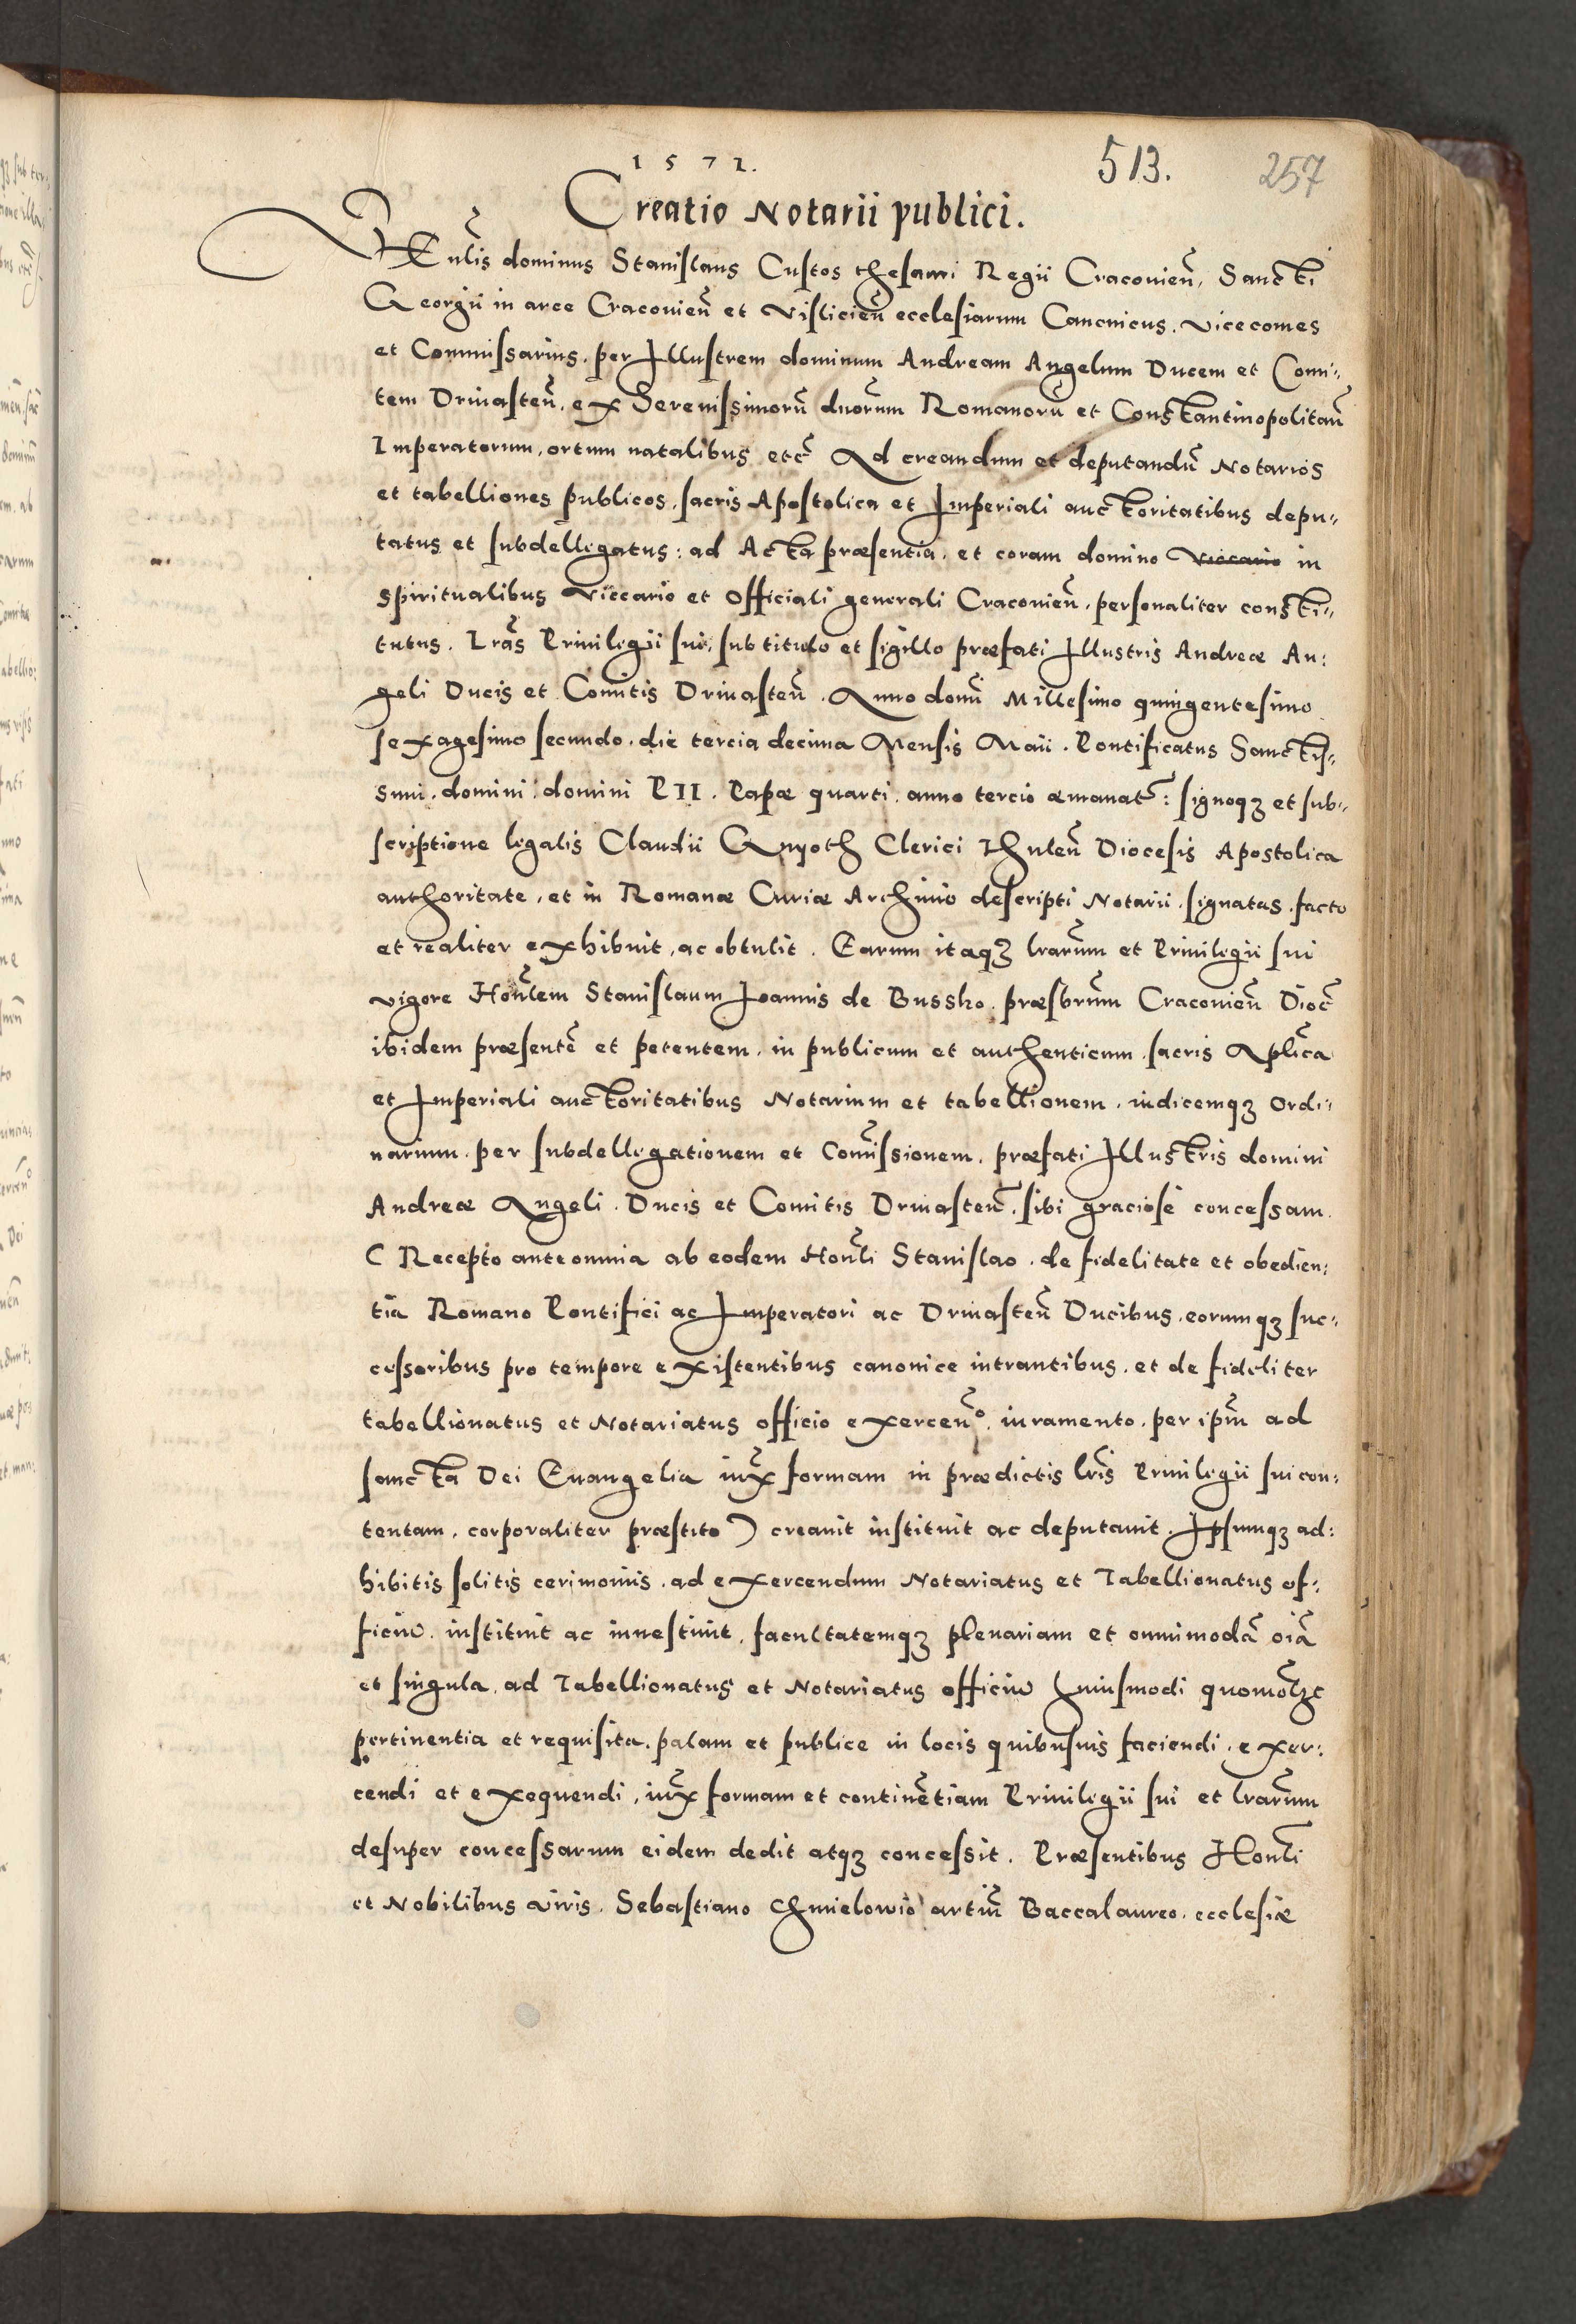 1571.
513. 257
Creatio Notarii publici.
Venlis dominus Stanislaus Custos thesauri Regii Craconien, Sancti
Georgii in arce Craconien et Visliciен ecclesiarum Canonicus. vicecomes
et Commissarius. per Illustrem dominum Andream Angelum Ducem et Comi„
tem Drivasten. ex Serenissimorū dnorum Romanorū et Constantinopolitan
Imperatorum, ortum natalibus etc̄ Ad creandum et deputandū Notarios
et tabelliones publicos, sacris Apostolica et Imperiali auctoritatibus depu„
tatus et subdellegatus: ad Acta præsentia. et coram domino Viccario in
spiritualibus Viccario et Officiali generali Craconien, personaliter consti„
tutus. Lrās Privilegii sui, sub titulo et sigillo præfati Illustris Andreæ An:
geli Ducis et Comitis Drivasten. Anno domī Millesimo quingentesimo
sexagesimo secundo. die tercia decima Mensis Maii. Pontificatus Sanctis„
simi. domini. domini PII. Papæ quarti. anno tercio æmanat: signoqȝ et sub„
scriptione legalis Claudii Clerici Diocesis Apostolica
authoritate, et in Romanæ Curiæ Archivio descripti Notarii. signatas. facto
et realiter exhibuit, ac obtulit. Earum itaqȝ lrārum et Privilegii sui
vigore Honlem Stanislaum Ioannis de Bussko. præsbrum Craconien Dioc̄
ibidem præsentē et petentem. in publicum et authenticum. sacris Aplica
et Imperiali auctoritatibus Notarium et tabellionem. iudicemqȝ Ordi„
narium. per subdellegationem et Comissionem. præfati Illustris domini
Andreæ Angeli. Ducis et Comitis Drivasten. sibi graciose concessam.
( Recepto ante omnia ab eodem Honli Stanislao. de fidelitate et obedien:
tia Romano Pontifici ac Imperatori ac Drivasten Ducibus. eorumqȝ suc„
cessoribus pro tempore existentibus canonice intrantibus. et de fideliter
tabellionatus et Notariatus officio exercenº. iuramento. per ipm̄ ad
sancta Dei Evangelia iux̄ formam in prædictis lris Privilegii sui con:
tentam. corporaliter præstito ) creavit instituit ac deputavit. Ipsumqȝ ad:
hibitis solitis cerimoniis. ad exercendum Notariatus et Tabellionatus of„
ficiū. instituit ac investivit. facultatemqȝ plenariam et omnimodā oiā
et singula. ad Tabellionatus et Notariatus officiū huiusmodi quomolȝt
pertinentia et requisita. palam et publice in locis quibusvis faciendi. exer:
cendi et exequendi. iux̄ formam et continentiam Privilegii sui et lrārum
desuper concessarum eidem dedit atqȝ concessit. Præsentibus Honli
et Nobilibus viris. Sebastiano Chmielowio artiū Baccalaureo. ecclesiæ